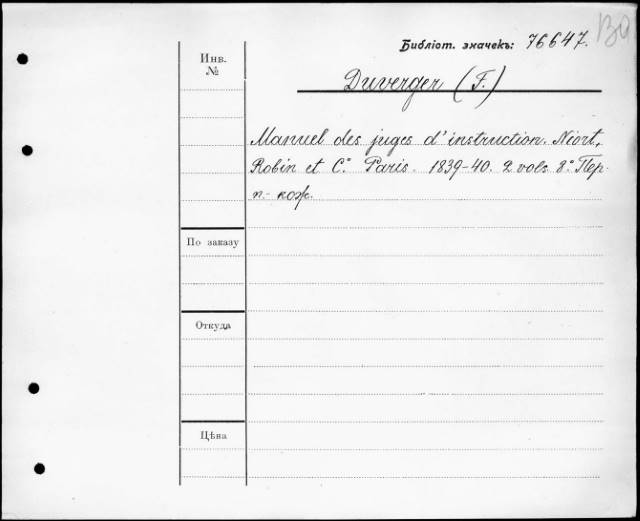 Библіот. значекъ: 76647.
Инв.
№
Duverger (F.)
Manuel des juges d'instruction. Niort,
Robin et C.º Paris. 1839-40. 2 vols. 8.º Пер.
п.-кож.
По заказу
Откуда
Цѣна